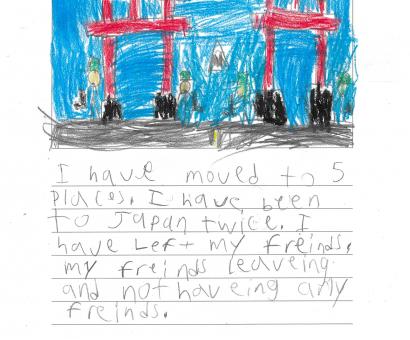 I have moved to 5
places. I have been
to Japan twice. I
have Left my freinds,
my freinds leaveing
and not haveing any
freinds.